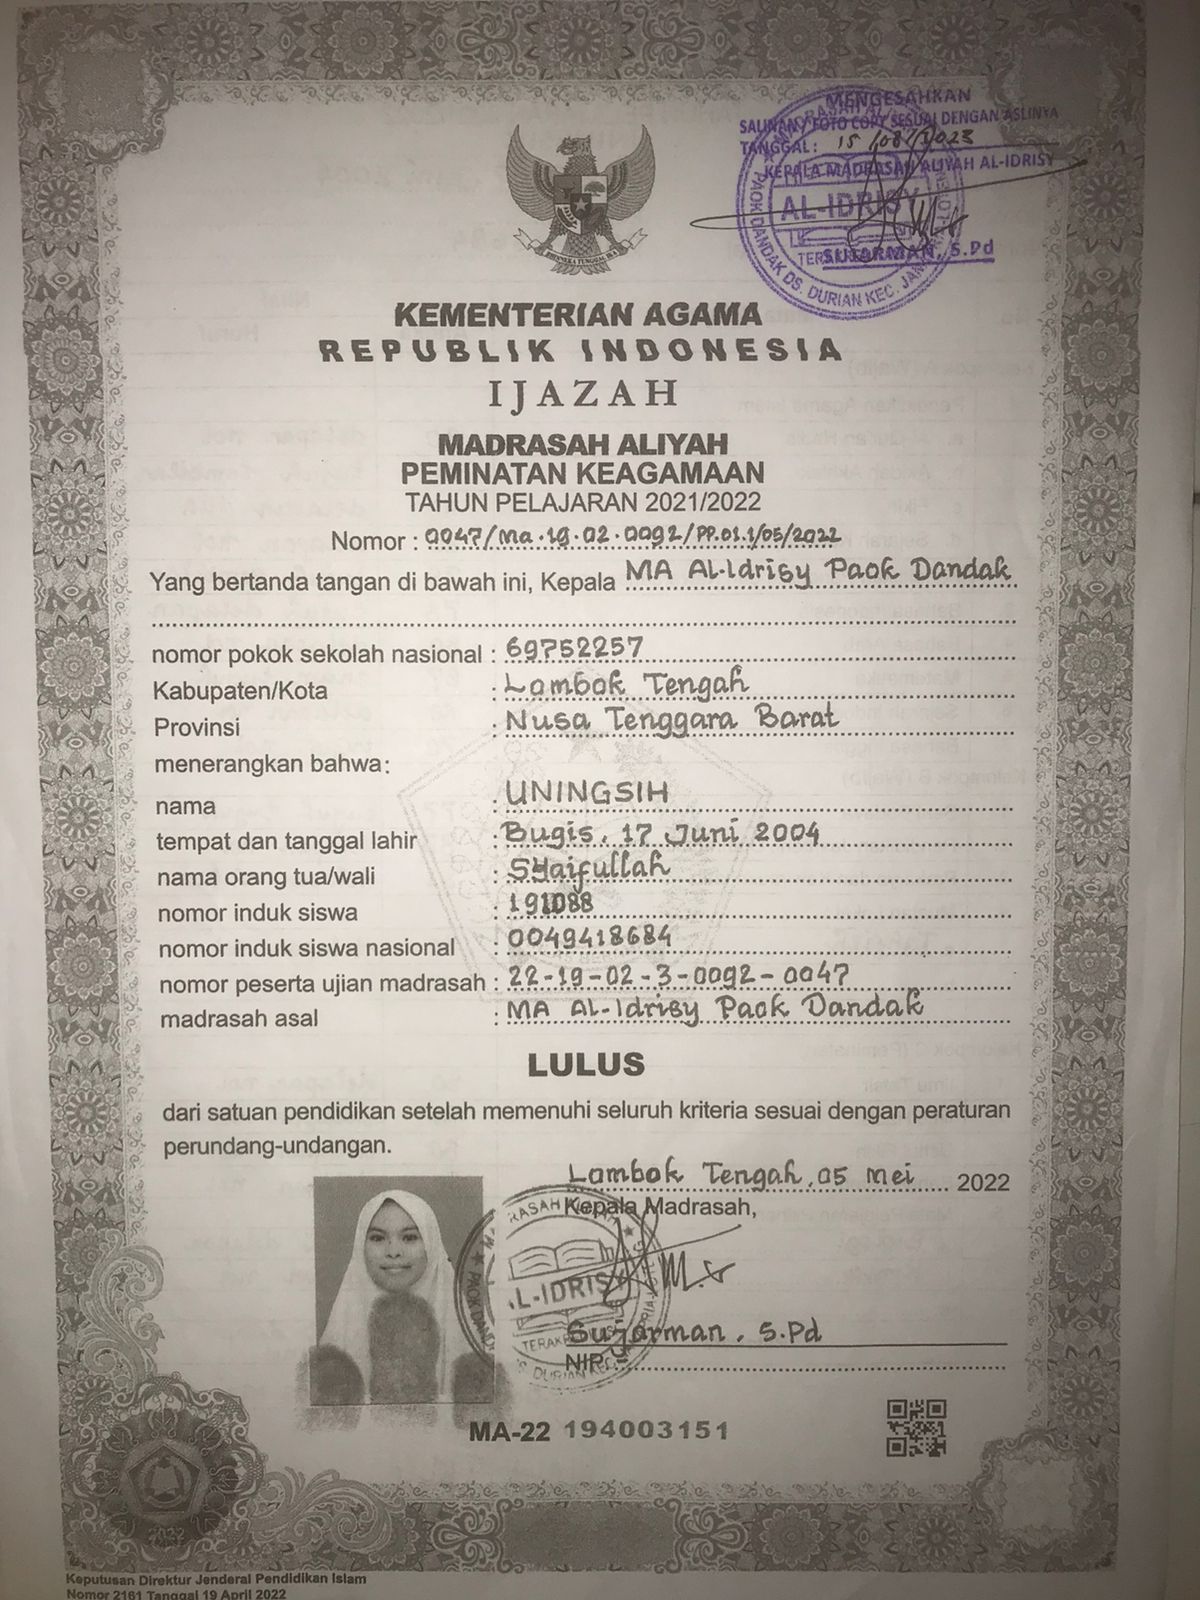 MENGESAHKAN
SALINAN / FOTO COPY SESUAI DENGAN ASLINYA
TANGGAL : 15 / 08 / 2023
KEPALA MADRASAH ALIYAH AL-IDRISY
AL-IDRISY
SUJARMAN, S.Pd
PAOK DANDAK DS. DURIAN KEC.
BHINNEKA TUNGGAL IKA
KEMENTERIAN AGAMA
REPUBLIK INDONESIA
IJAZAH
MADRASAH ALIYAH
PEMINATAN KEAGAMAAN
TAHUN PELAJARAN 2021/2022
Nomor : 0047/Ma.19.02.0092/PP.01.1/05/2022
Yang bertanda tangan di bawah ini, Kepala MA Al-Idrisy Paok Dandak
nomor pokok sekolah nasional : 69752257
Kabupaten/Kota : Lombok Tengah
Provinsi : Nusa Tenggara Barat
menerangkan bahwa:
nama : UNINGSIH
tempat dan tanggal lahir : Bugis, 17 Juni 2004
nama orang tua/wali : SYaifullah
nomor induk siswa : 191088
nomor induk siswa nasional : 0049418684
nomor peserta ujian madrasah : 22-19-02-3-0092-0047
madrasah asal : MA Al-Idrisy Paok Dandak
LULUS
dari satuan pendidikan setelah memenuhi seluruh kriteria sesuai dengan peraturan
perundang-undangan.
Lombok Tengah, 05 Mei 2022
Kepala Madrasah,
AL-IDRISY
Sujarman, S.Pd
NIP.
MA-22 194003151
2022
Keputusan Direktur Jenderal Pendidikan Islam
Nomor 2161 Tanggal 19 April 2022